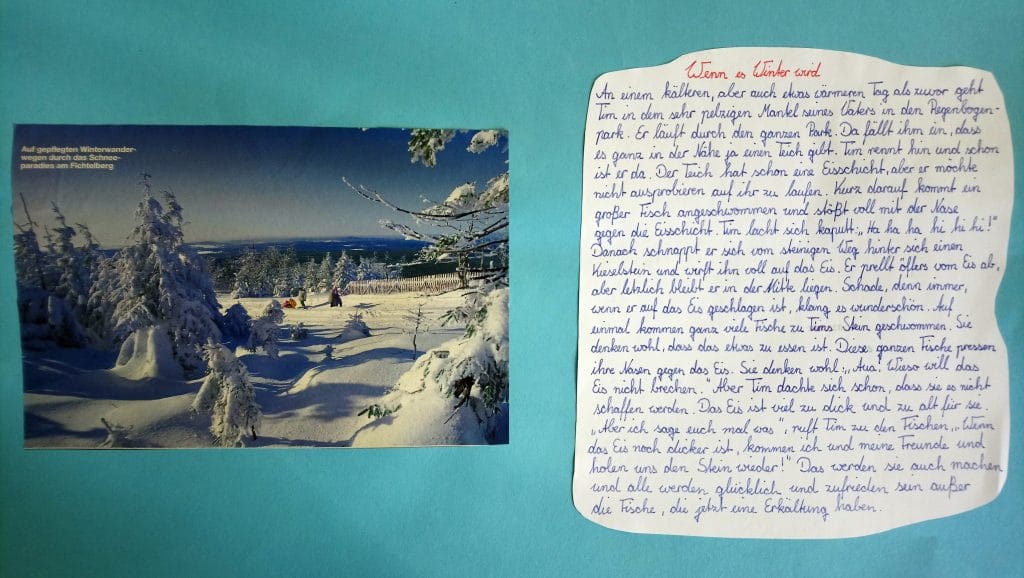 Auf gepflegten Winterwander-
wegen durch das Schnee-
paradies am Fichtelberg
Wenn es Winter wird
An einem kälteren, aber auch etwas wärmeren Tag als zuvor geht
Tim in dem sehr pelzigen Mantel seines Vaters in den Regenbogen-
park. Er läuft durch den ganzen Park. Da fällt ihm ein, dass
es ganz in der Nähe ja einen Teich gibt. Tim rennt hin und schon
ist er da. Der Teich hat schon eine Eisschicht, aber er möchte
nicht ausprobieren auf ihr zu laufen. Kurz darauf kommt ein
großer Fisch angeschwommen und stößt voll mit der Nase
gegen die Eisschicht. Tim lacht sich kaputt: „Ha ha ha hi hi hi!"
Danach schnappt er sich vom steinigen Weg hinter sich einen
Kieselstein und wirft ihn voll auf das Eis. Er prellt öfters vom Eis ab,
aber letzlich bleibt er in der Mitte liegen. Schade, denn immer,
wenn er auf das Eis geschlagen ist, klang es wunderschön. Auf
einmal kommen ganz viele Fische zu Tims Stein geschwommen. Sie
denken wohl, dass das etwas zu essen ist. Diese ganzen Fische pressen
ihre Nasen gegen das Eis. Sie denken wohl: „Aua! Wieso will das
Eis nicht brechen." Aber Tim dachte sich schon, dass sie es nicht
schaffen werden. Das Eis ist viel zu dick und zu alt für sie.
„Aber ich sage euch mal was", ruft Tim zu den Fischen, „Wenn
das Eis noch dicker ist, kommen ich und meine Freunde und
holen uns den Stein wieder!" Das werden sie auch machen
und alle werden glücklich und zufrieden sein außer
die Fische, die jetzt eine Erkältung haben.